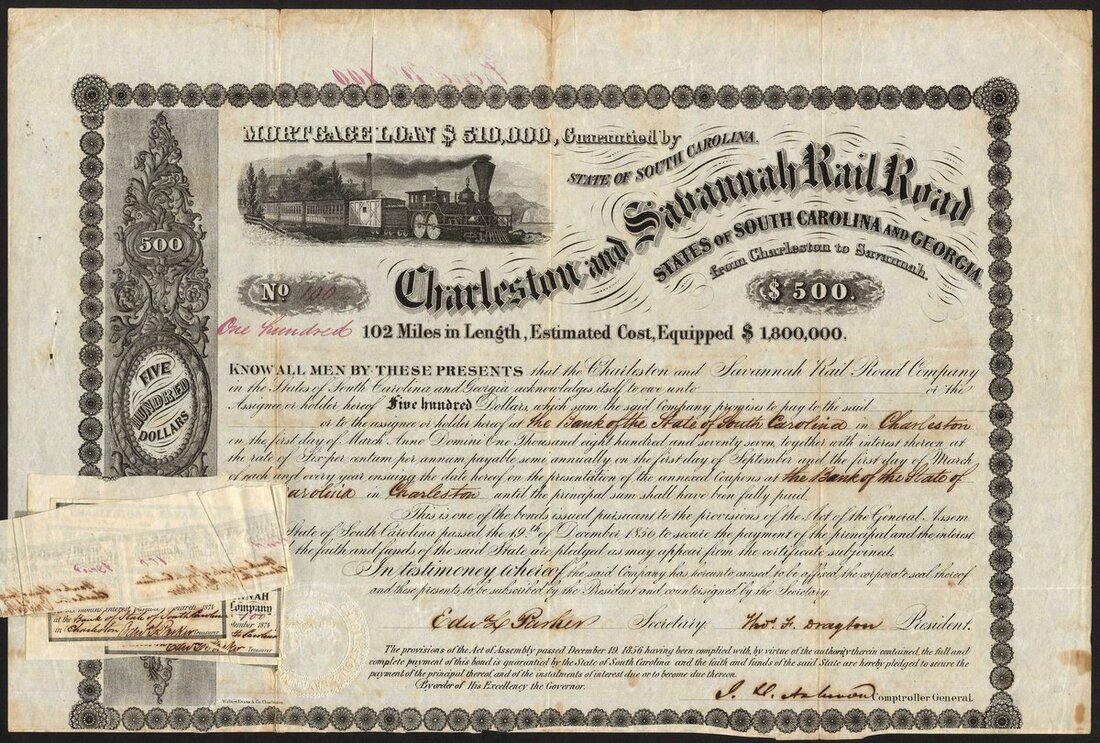 MORTGAGE LOAN $ 510,000, Guarantied by
STATE OF SOUTH CAROLINA.
Charleston and Savannah Rail Road
STATES OF SOUTH CAROLINA AND GEORGIA
from Charleston to Savannah.
No 100
$ 500.
One hundred
102 Miles in Length, Estimated Cost, Equipped $ 1,800,000.
500
FIVE
HUNDRED
DOLLARS
KNOW ALL MEN BY THESE PRESENTS that the Charleston and Savannah Rail Road Company
in the States of South Carolina and Georgia acknowledges itself to owe unto or the
Assignee or holder hereof Five hundred Dollars, which sum the said Company promises to pay to the said
or to the assignee or holder hereof at the Bank of the State of South Carolina in Charleston
on the first day of March Anno Domini One Thousand eight hundred and seventy seven, together with interest thereon at
the rate of Six per centum per annum payable semi annually on the first day of September and the first day of March
of each and every year ensuing the date hereof on the presentation of the annexed Coupons at the Bank of the State of
arolina in Charleston until the principal sum shall have been fully paid.
This is one of the bonds issued pursuant to the provisions of the Act of the General Assem
State of South Carolina passed the 19th of December 1856 to secure the payment of the principal and the interest
the faith and funds of the said State are pledged as may appear from the certificate subjoined.
In testimony whereof the said Company has hereunto caused to be affixed the corporate seal thereof
and these presents to be subscribed by the President and countersigned by the Secretary.
Edw L Parker Secretary. Tho. F. Drayton President.
The provisions of the Act of Assembly passed December 19, 1856 having been complied with, by virtue of the authority therein contained, the full and
complete payment of this bond is guarantied by the State of South Carolina and the faith and funds of the said State are hereby pledged to secure the
payment of the principal thereof, and of the instalments of interest due or to become due thereon.
By order of His Excellency the Governor.
Comptroller General.
NNAH
Company
100
tember 1874
March 1874
at the Bank of State of South Carolina
in Charleston Edw L Parker Treasurer
Carolina
Edw L Parker Treasurer
Walker, Evans & Co. Charleston.